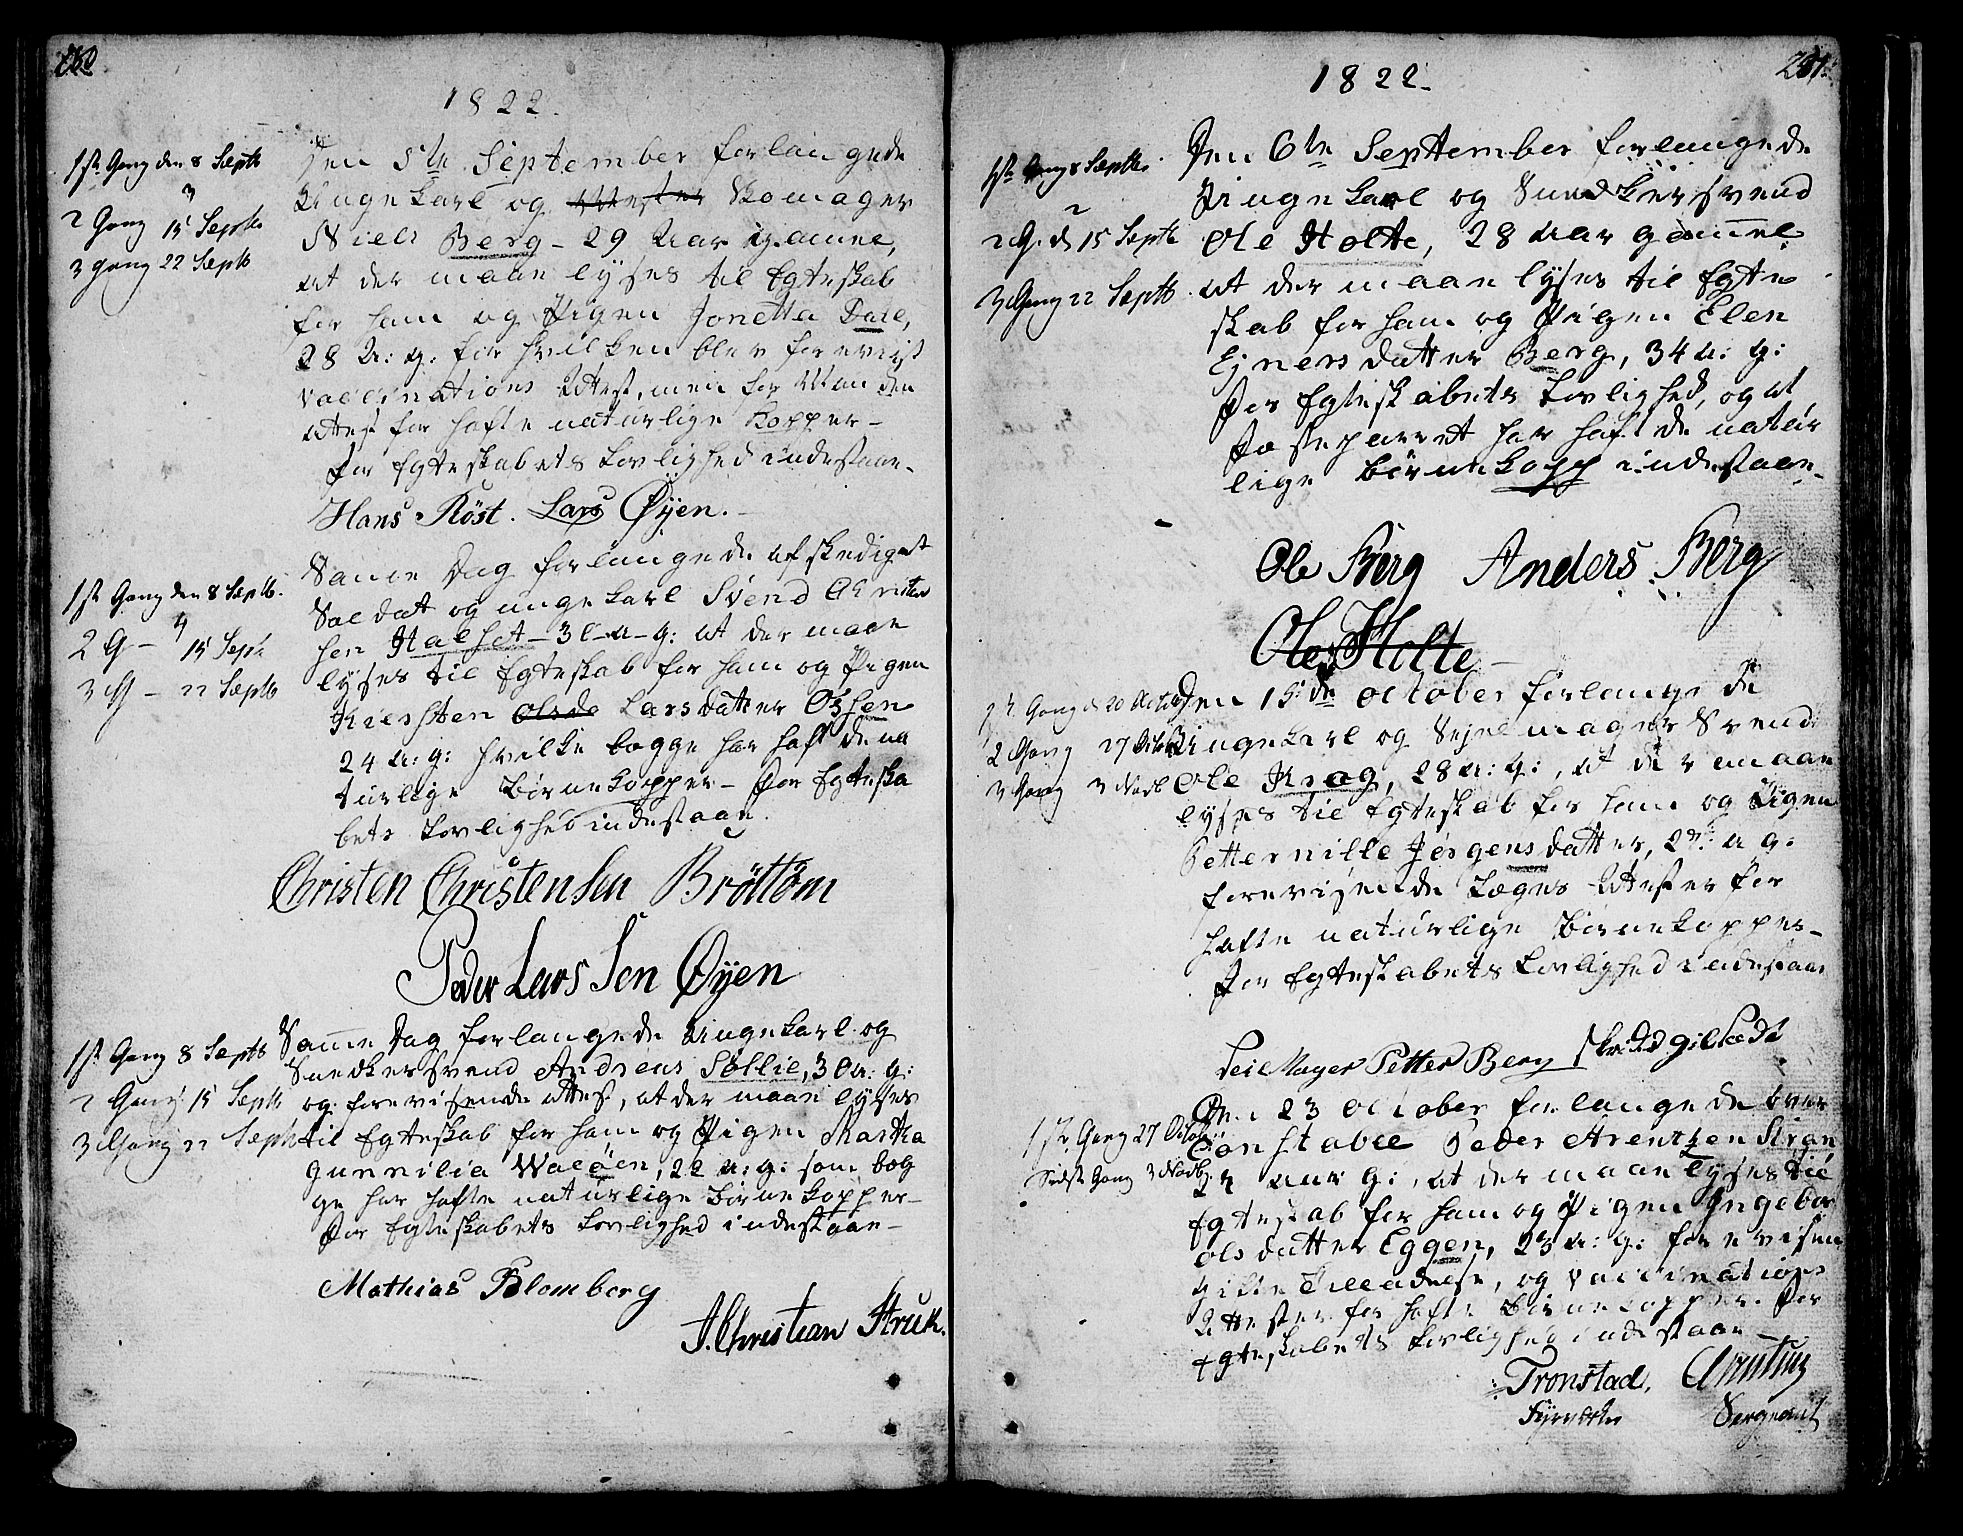 1822.
1ste Gang den 8 Septb
2 Gang 15 Septb.
3 gang 22 Septb
Den 5te September forlangede
Ungekarl og Skomager
Niels Berg - 29 Aar gamel,
at der maae lyses til Egteskab
for ham og Pigen Jonetta Dall,
28 A: g. for hvilken blev foreviist
Vaccinations Attest, men for Manden
Attest for hafte naturlige Kopper -
For Egteskabets Lovlighed indestaae.
Hans Röst. Lars Øyen.
1ste Gang den 8 Septb.
2 G - 15 Sept
3 G - 22 Septb
Samme Dag forlangede afskediget
Soldat og ungekarl Svend Christen
sen Halset - 31 - a - g: at der maae
lyses til Egteskab for ham og Pigen
Kiersten Olsda Larsdatter
24 a: g: hvilke begge har haft de na
turlige Børnekopper - For Egteska
bets Lovlighed indestaae.
Christen Christensen Bröttöm
Peder Lars Sen Øyen
1ste Gang 8 Septb
2 Gang 15 Septb
3 Gang 22 Septb
Samme Dag forlangede Ungekarl og
Snedkersvend Andreas Søllie, 30 a: g:
og forevisende Attest, at der maae lyses
til Egteskab for ham og Pigen Martha
Gunnilia Waløen, 22 a: g: som beg
ge har hafte naturlige Børnekopper -
For Egteskabets Lovlighed indestaae -
Mathias Blomberg
J. Christian Struk.
1822.
1ste Gang 8 Septb.
2 G. d 15 Septb
3 Gang 22 Septb
Den 6te September forlangede
Ungekarl og Snedkersvend
Ole Holte, 28 Aar gammel
at der maae lyses til Egte
skab for ham og Pigen Elen
Ejnersdatter Berg, 34 a: g:
For Egteskabets Lovlighed, og at
Parret har haft de natur
lige Børnekopp indestaae -
Ole Berg Anders Berg
Ole Holte
1ste Gang d 20 October
2 Gang 27 Octob
3 Gang 3 Novb
Den 15de October forlangede
Ungekarl og Sejelmager Svend
Ole Krog, 28 a: g:, at der maae
lyses til Egteskab for ham og Pigen
Petternille Jørgensdatter, a g:
forevisende Læges Attester for
hafte naturlige Børnekopper -
For Egteskabets Lovlighed indestaae
Seil Mager Petter Berg
1ste Gang 27 Octob
Sidste Gang 3 Novb
Den 23 October forlangede Over
Constabel Peder Arentzen
aar g:, at der maae lyses til
Egteskab for ham og Pigen Ingebor
Olsdatter Eggen, 23 a: g: forevisen
Gifte Tilladelse, og Vaccinations
Attester for hafte Børnekopper. For
Egteskabets Lovlighed indestaae -
Tronstad. Arntung
Fyrverker Sergeant